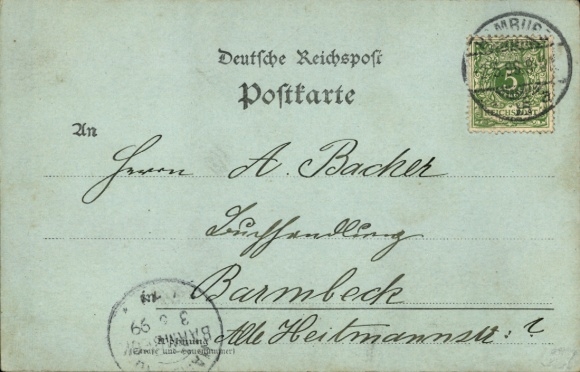 Deutsche Reichspost
Postkarte
HAMBURG
5
REICHSPOST
An
Herrn A. Backer
Buchhandlung
Barmbeck
Alte Heitmannstr: 2
Wohnung
(Straße und Hausnummer)
BARMBECK
3 5 99